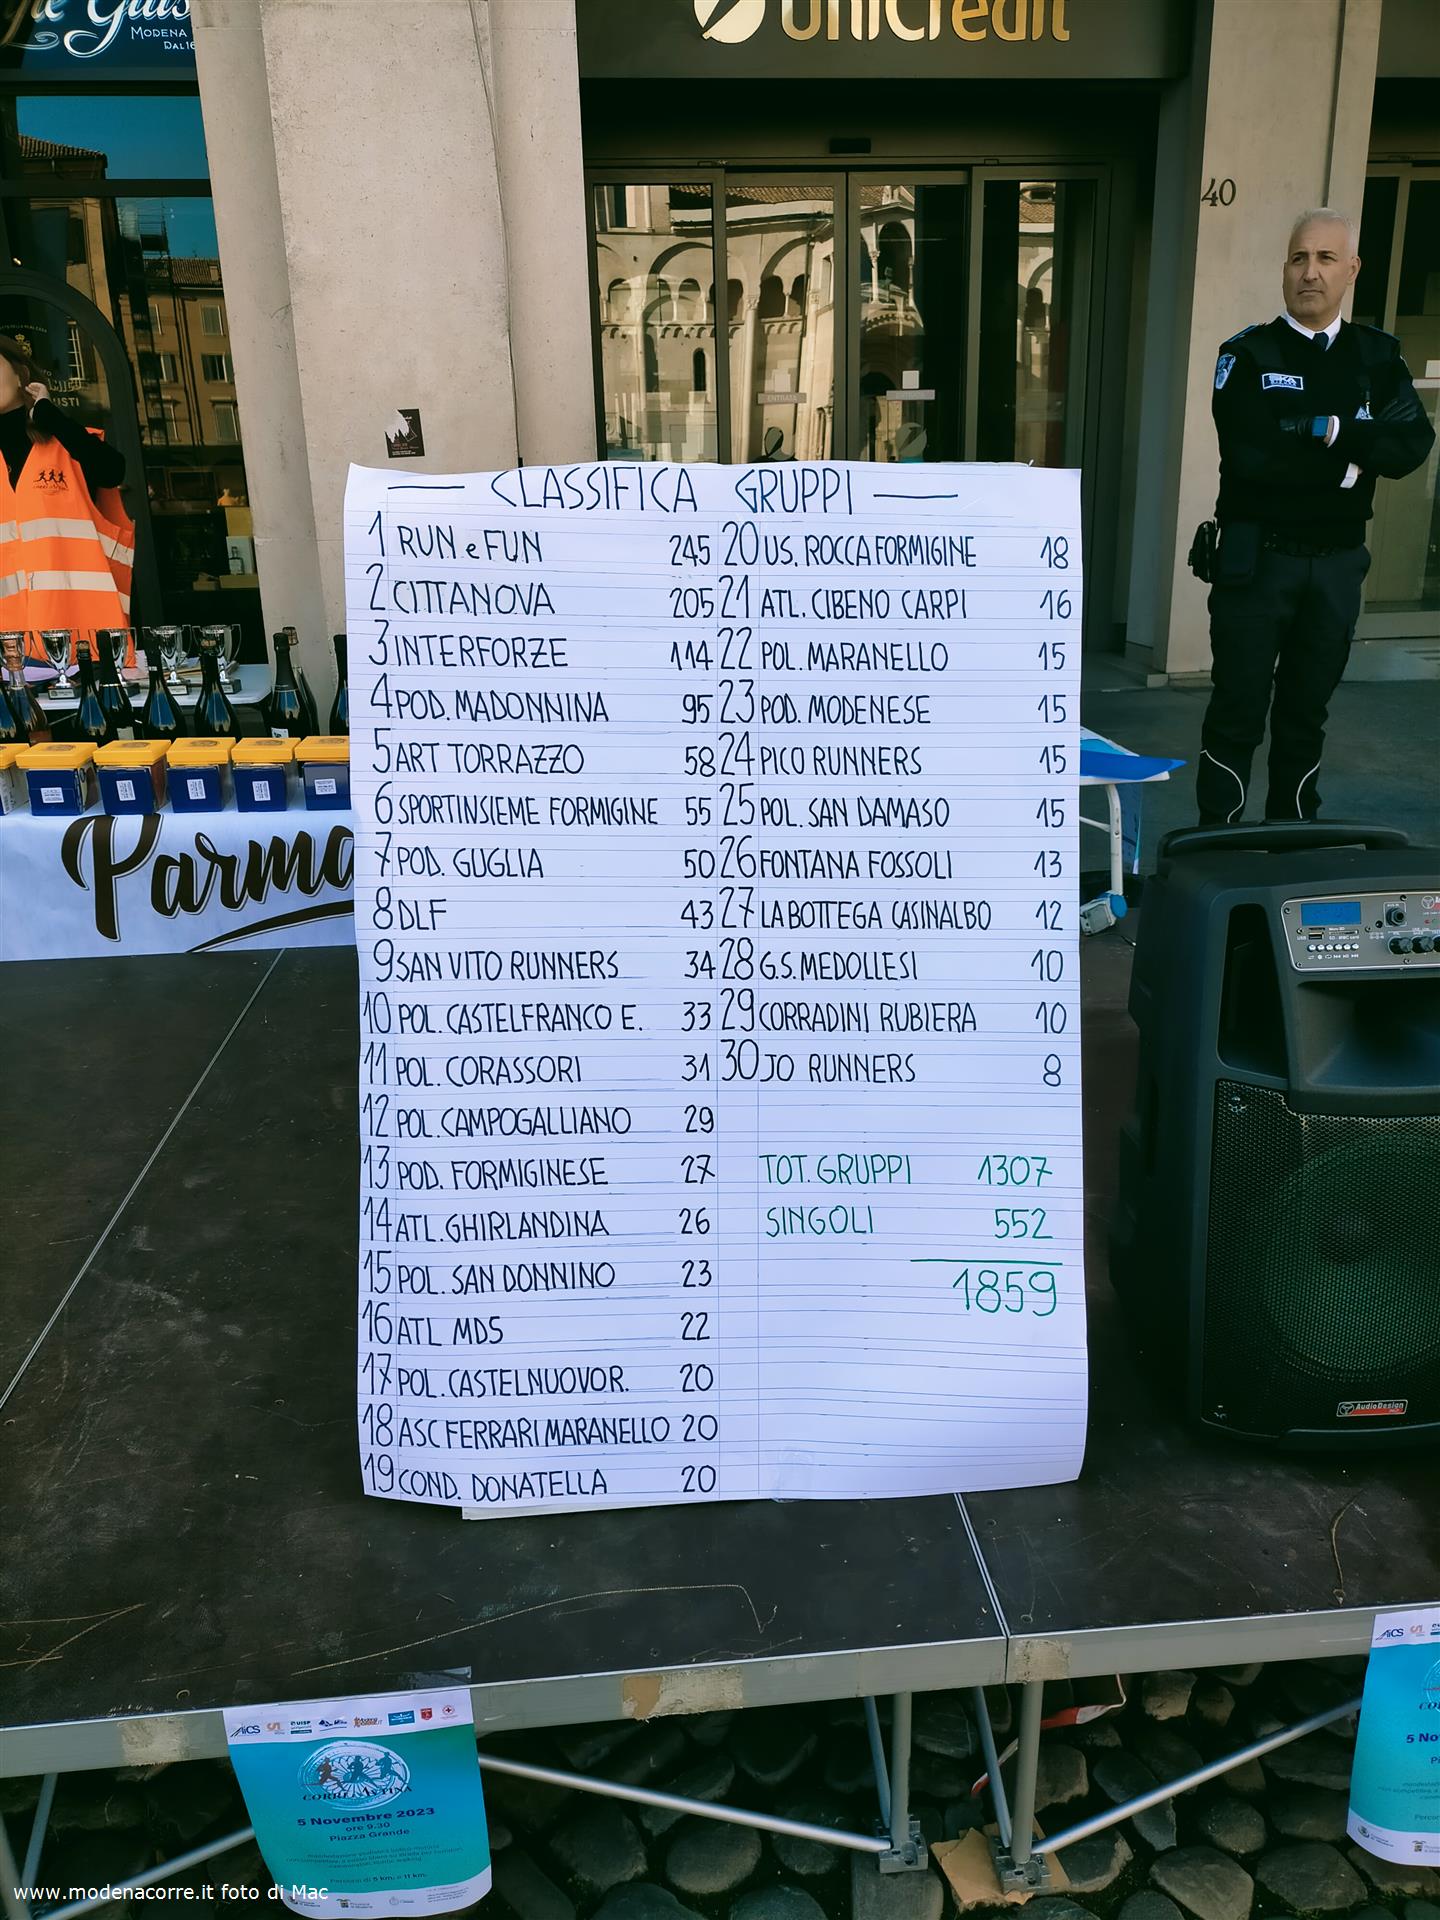 MODENA
UniCredit
40
— CLASSIFICA GRUPPI —
1 RUN e FUN 245
2 CITTANOVA 205
3 INTERFORZE 114
4 POD. MADONNINA 95
5 ART TORRAZZO 58
6 SPORTINSIEME FORMIGINE 55
7 POD. GUGLIA 50
8 DLF 43
9 SAN VITO RUNNERS 34
10 POL. CASTELFRANCO E. 33
11 POL. CORASSORI 31
12 POL. CAMPOGALLIANO 29
13 POD. FORMIGINESE 27
14 ATL. GHIRLANDINA 26
15 POL. SAN DONNINO 23
16 ATL MDS 22
17 POL. CASTELNUOVO R. 20
18 ASC FERRARI MARANELLO 20
19 COND. DONATELLA 20
20 US. ROCCA FORMIGINE 18
21 ATL. CIBENO CARPI 16
22 POL. MARANELLO 15
23 POD. MODENESE 15
24 PICO RUNNERS 15
25 POL. SAN DAMASO 15
26 FONTANA FOSSOLI 13
27 LA BOTTEGA CASINALBO 12
28 G.S. MEDOLLESI 10
29 CORRADINI RUBIERA 10
30 JO RUNNERS 8
TOT. GRUPPI 1307
SINGOLI 552
1859
Parma
AudioDesign
AiCS
UISP
5 Novembre 2023
ore 9.30
Piazza Grande
Percorsi di 5 km. e 11 km.
AiCS
5 No
www.modenacorre.it foto di Mac